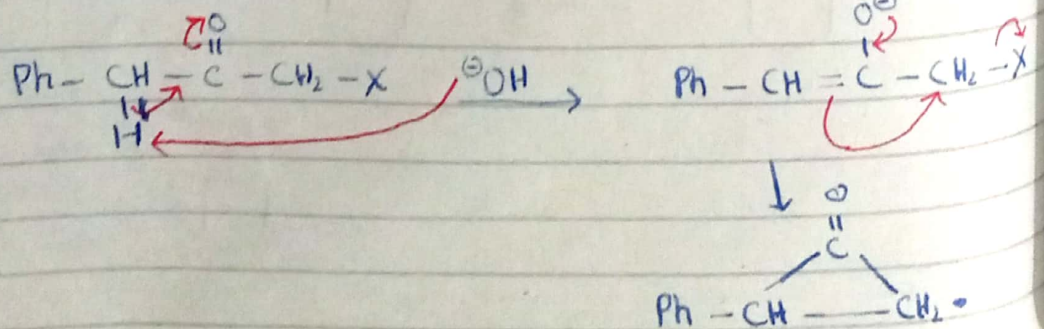 O O⊖
|| |
Ph - CH - C - CH₂ - X ⊖OH → Ph - CH = C - CH₂ - X
H
↓
O
||
C
Ph - CH — CH₂